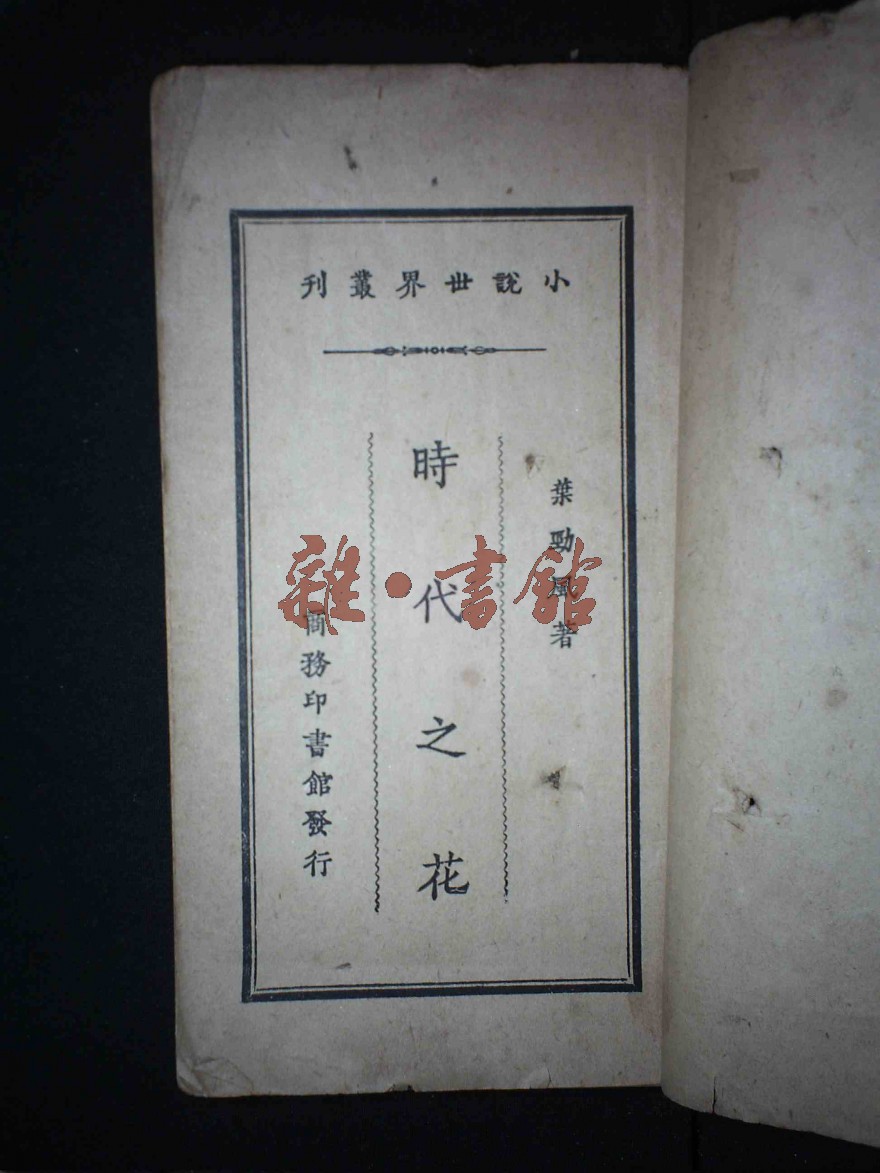 小說世界叢刊
葉勁風著
時代之花
商務印書館發行
雜·書館